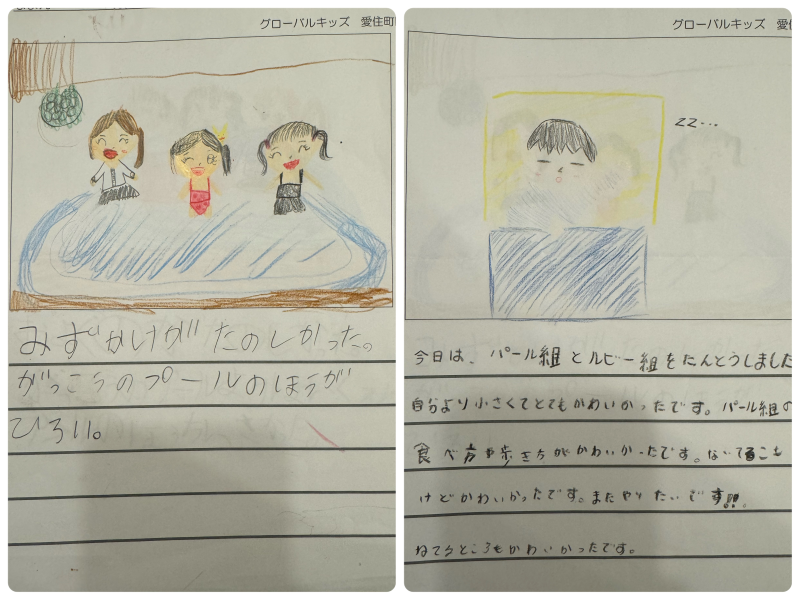 グローバルキッズ 愛住町
みずかけが たのしかった。
がっこうのプールのほうが
ひろい。
グローバルキッズ 愛住
zz...
今日は、パール組とルビー組をたんとうしました
自分より小さくてとてもかわいかったです。パール組の
食べ方や歩き方がかわいかったです。ないてるこも
けどかわいかったです。またやりたいです!!
ねてるところもかわいかったです。